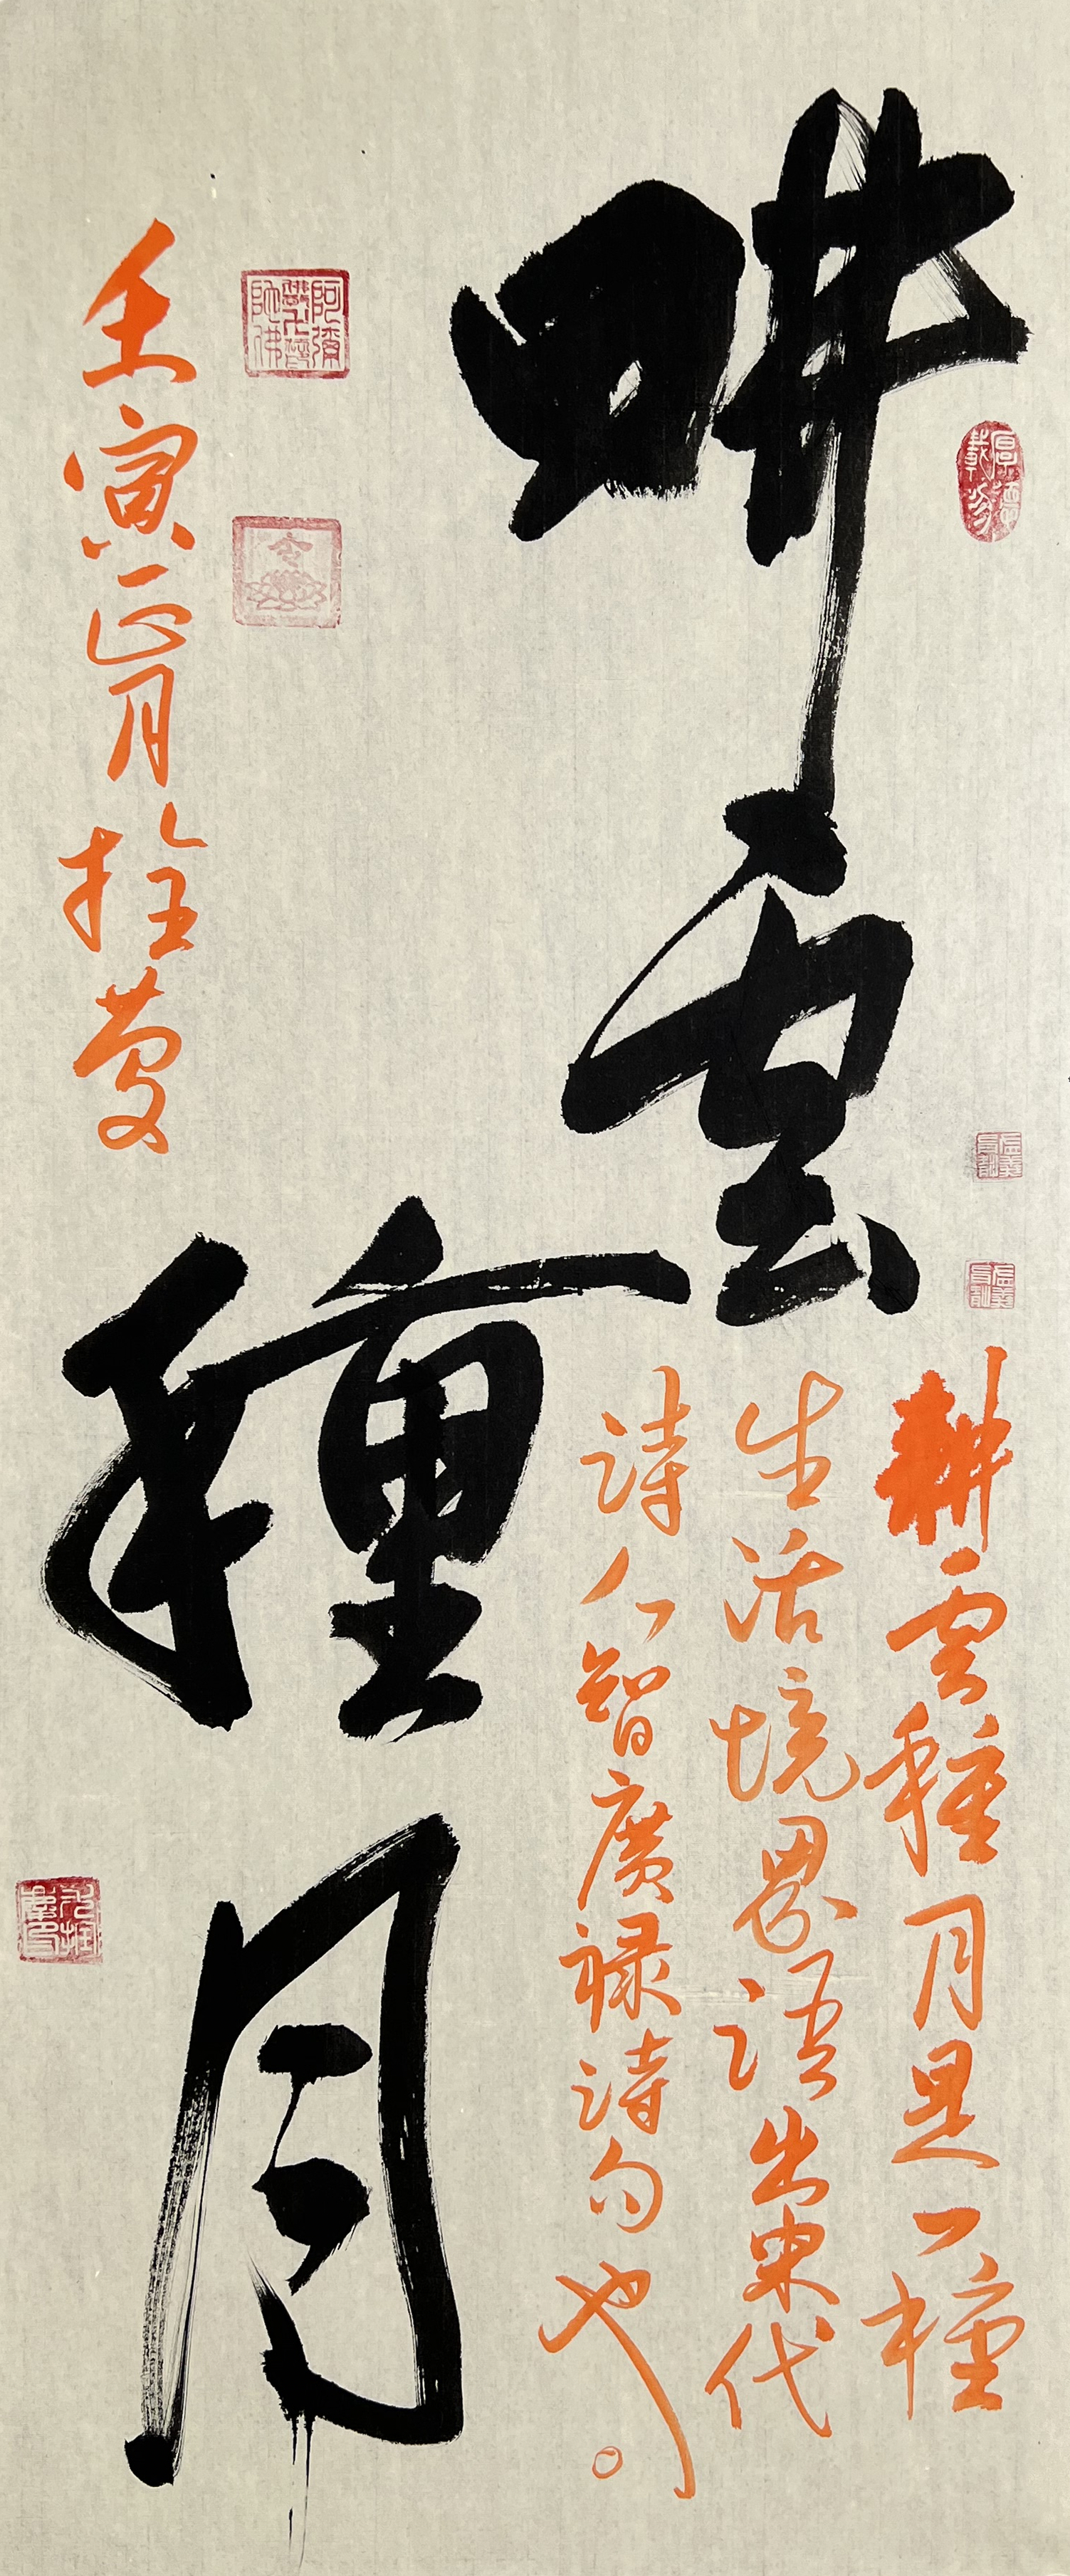 畊雲
厚德載物
耕雲種月是一種
生活境界語出宋代
詩人智廣禄詩句也。
種月
壬寅正月拴